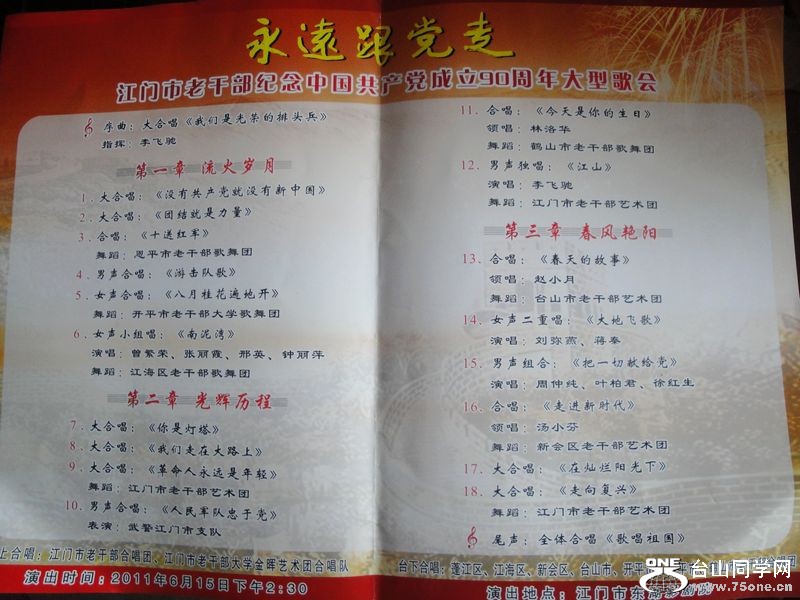 永远跟党走
江门市老干部纪念中国共产党成立90周年大型歌会
序曲：大合唱《我们是光荣的排头兵》
指挥：李飞驰
第一章 流火岁月
1. 大合唱：《没有共产党就没有新中国》
2. 大合唱：《团结就是力量》
3. 合唱：《十送红军》
舞蹈：恩平市老干部歌舞团
4. 男声合唱：《游击队歌》
5. 女声合唱：《八月桂花遍地开》
舞蹈：开平市老干部大学歌舞团
6. 女声小组唱：《南泥湾》
演唱：曾繁荣、张丽霞、邢英、钟丽萍
舞蹈：江海区老干部歌舞团
第二章 光辉历程
7. 大合唱：《你是灯塔》
8. 大合唱：《我们走在大路上》
9. 大合唱：《革命人永远是年轻》
舞蹈：江门市老干部艺术团
10. 男声合唱：《人民军队忠于党》
表演：武警江门市支队
上合唱：江门市老干部合唱团、江门市老干部大学金晖艺术团合唱队
演出时间：2011年6月15日下午2:30
11. 合唱：《今天是你的生日》
领唱：林洛华
舞蹈：鹤山市老干部歌舞团
12. 男声独唱：《江山》
演唱：李飞驰
舞蹈：江门市老干部艺术团
第三章 春风艳阳
13. 合唱：《春天的故事》
领唱：赵小月
舞蹈：台山市老干部艺术团
14. 女声二重唱：《大地飞歌》
演唱：刘弥燕、蒋奉
15. 男声组合：《把一切献给党》
演唱：周仲纯、叶柏君、徐红生
16. 合唱：《走进新时代》
领唱：汤小芬
舞蹈：新会区老干部艺术团
17. 大合唱：《在灿烂阳光下》
18. 大合唱：《走向复兴》
舞蹈：江门市老干部艺术团
尾声：全体合唱《歌唱祖国》
台下合唱：蓬江区、江海区、新会区、台山市、开平
演出地点：江门市东湖
ONE 75 台山同学网
www.75one.cn